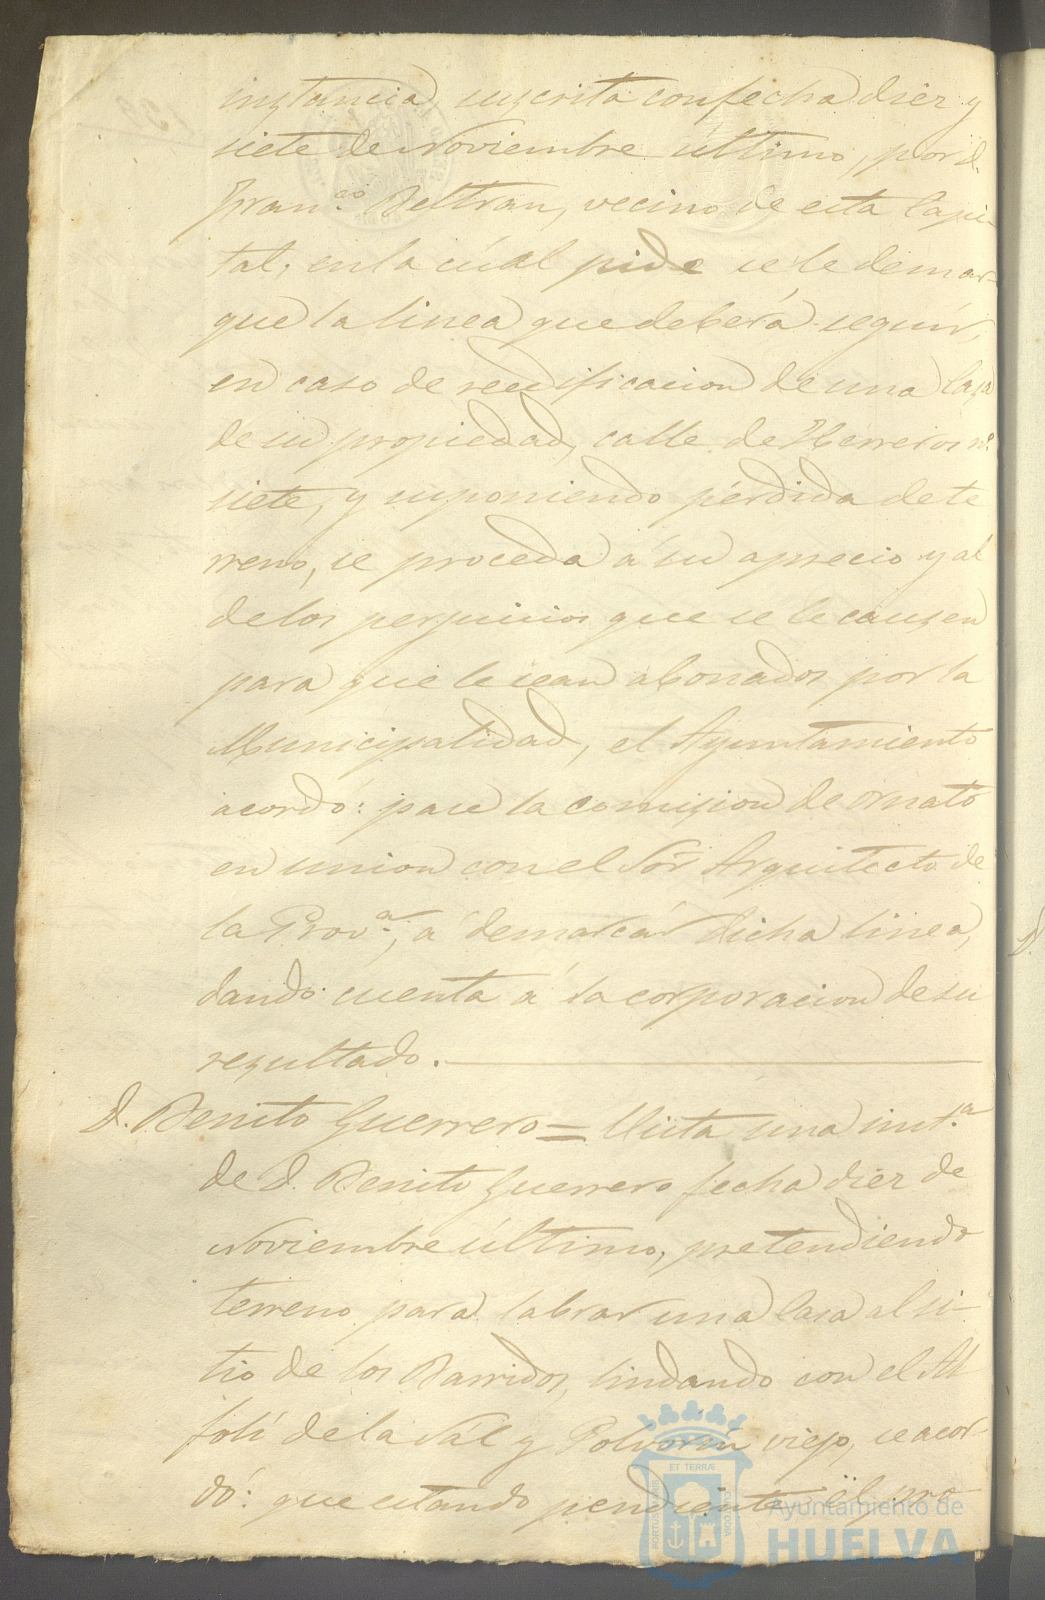 instancia suscrita con fecha diez y
siete de Noviembre último, por D.
Fran.co Beltran, vecino de esta Capi-
tal, en la cúal pide se le demar-
que la linea que deberá seguir,
en caso de reedificacion de una Casa
de su propiedad, calle de Herreros n.º
siete, y suponiendo pérdida de te
rreno, se proceda á su aprecio y al
de los perjuicios que se le causen
para que le sean abonados por la
Municipalidad, el Ayuntamiento
acordó: pase la comision de ornato
en union con el Sōr Arquitecto de
la Prov.a, á demarcár dicha linea,
dando cuenta á la corporacion de su
resultado.
D. Benito Guerrero = Vista una inst.a
de D. Benito Guerrero fecha diez de
Noviembre último, pretendiendo
terreno para labrar una Casa al si-
tio de los Barridos, lindando con el Al
folí de la Sál y Polvorin viejo, se acor-
dó: que estando pendiente el pro-
ET TERRÆ
PORTUS MARIS
CUSTODIA
Ayuntamiento de
HUELVA